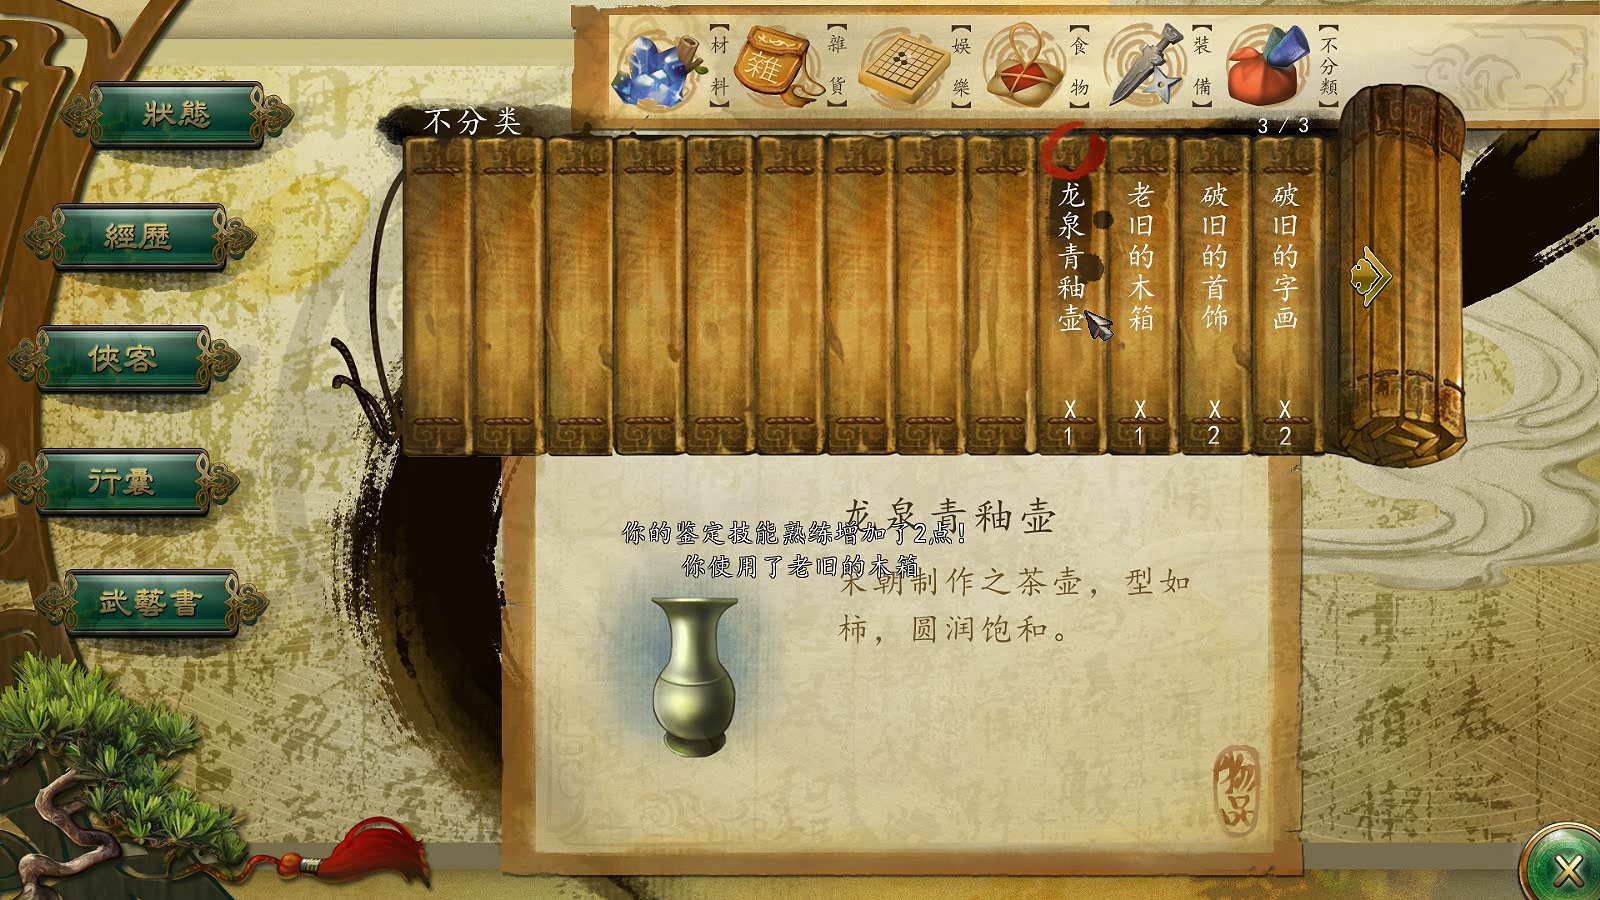 【材料】
雜
【雜貨】
【娛樂】
【食物】
【裝備】
【不分類】
狀態
經歷
俠客
行囊
武藝書
不分类
3 / 3
龙泉青釉壶
X
1
老旧的木箱
X
1
破旧的首饰
X
2
破旧的字画
X
2
龙泉青釉壶
你的鉴定技能熟练增加了2点!
你使用了老旧的木箱
宋朝制作之茶壶，型如
柿，圆润饱和。
物品